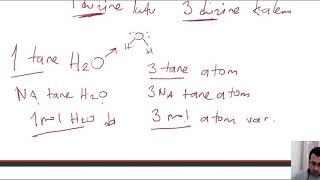 1 düzine kutu 3 düzine kalem
H H
1 tane H2O 3 tane atom
NA tane H2O 3NA tane atom
1 mol H2O da 3 mol atom var.